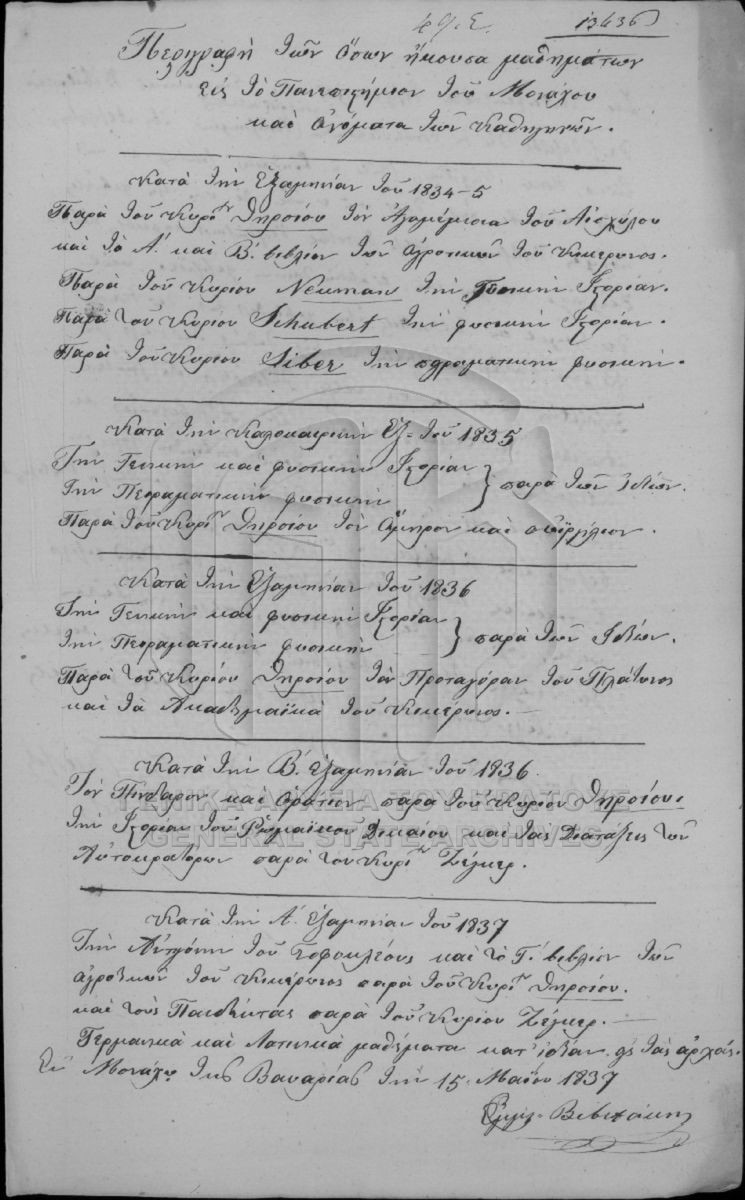 13436
Περιγραφὴ τῶν ὅσων ἤκουσα μαθημάτων
εἰς τὸ Πανεπιστήμιον τοῦ Μονάχου
καὶ ὀνόματα τῶν καθηγητῶν.
Κατὰ τὴν ἑξαμηνίαν τοῦ 1834-5
Παρὰ τοῦ Κυρίου Θηρσίου τὸν Ἀγαμέμνονα τοῦ Αἰσχύλου
καὶ τὸ Α΄. καὶ Β΄. βιβλίον τῶν τοῦ Κικέρωνος.
Παρὰ τοῦ Κυρίου Neuman τὴν Γενικὴν Ἱστορίαν.
Παρὰ τοῦ Κυρίου Schubert τὴν φυσικὴν Ἱστορίαν.
Παρὰ τοῦ Κυρίου Siber τὴν πειραματικὴν φυσικήν.
Κατὰ τὴν καλοκαιρινὴν ἑξ= τοῦ 1835
Τὴν Γενικὴν καὶ φυσικὴν Ἱστορίαν
τὴν Πειραματικὴν φυσικὴν } παρὰ τῶν ἰδίων.
Παρὰ τοῦ Κυρίου Θηρσίου τὸν Ὅμηρον καὶ Βιργίλιον.
Κατὰ τὴν ἑξαμηνίαν τοῦ 1836
Τὴν Γενικὴν καὶ φυσικὴν Ἱστορίαν
τὴν Πειραματικὴν φυσικὴν } παρὰ τῶν ἰδίων.
Παρὰ τοῦ Κυρίου Θηρσίου τὸν Πρωταγόραν τοῦ Πλάτωνος
καὶ τὰ Ἀκαδημαϊκὰ τοῦ Κικέρωνος.
Κατὰ τὴν Β΄. ἑξαμηνίαν τοῦ 1836.
Τὸν Πίνδαρον καὶ Ὁράτιον παρὰ τοῦ Κυρίου Θηρσίου.
τὴν Ἱστορίαν τοῦ Ῥωμαϊκοῦ Δικαίου καὶ τὰς Διατάξεις τῶν
Αὐτοκρατόρων παρὰ τοῦ Κυρίου Ζέγκερ.
ΓΕΝΙΚΑ ΑΡΧΕΙΑ ΤΟΥ ΚΡΑΤΟΥΣ
GENERAL STATE ARCHIVES
Κατὰ τὴν Α΄. ἑξαμηνίαν τοῦ 1837
Τὴν Ἀντιγόνην τοῦ Σοφοκλέους καὶ τὸ Γ΄. βιβλίον τῶν
τοῦ Κικέρωνος παρὰ τοῦ Κυρίου Θηρσίου.
καὶ τοὺς Πανδέκτας παρὰ τοῦ Κυρίου Ζέγκερ.
Γερμανικὰ καὶ Λατινικὰ μαθήματα κατ' ἰδίαν εἰς τὰς ἀρχάς.
Ἐν Μονάχῳ τῆς Βαυαρίας τὴν 15. Μαΐου 1837